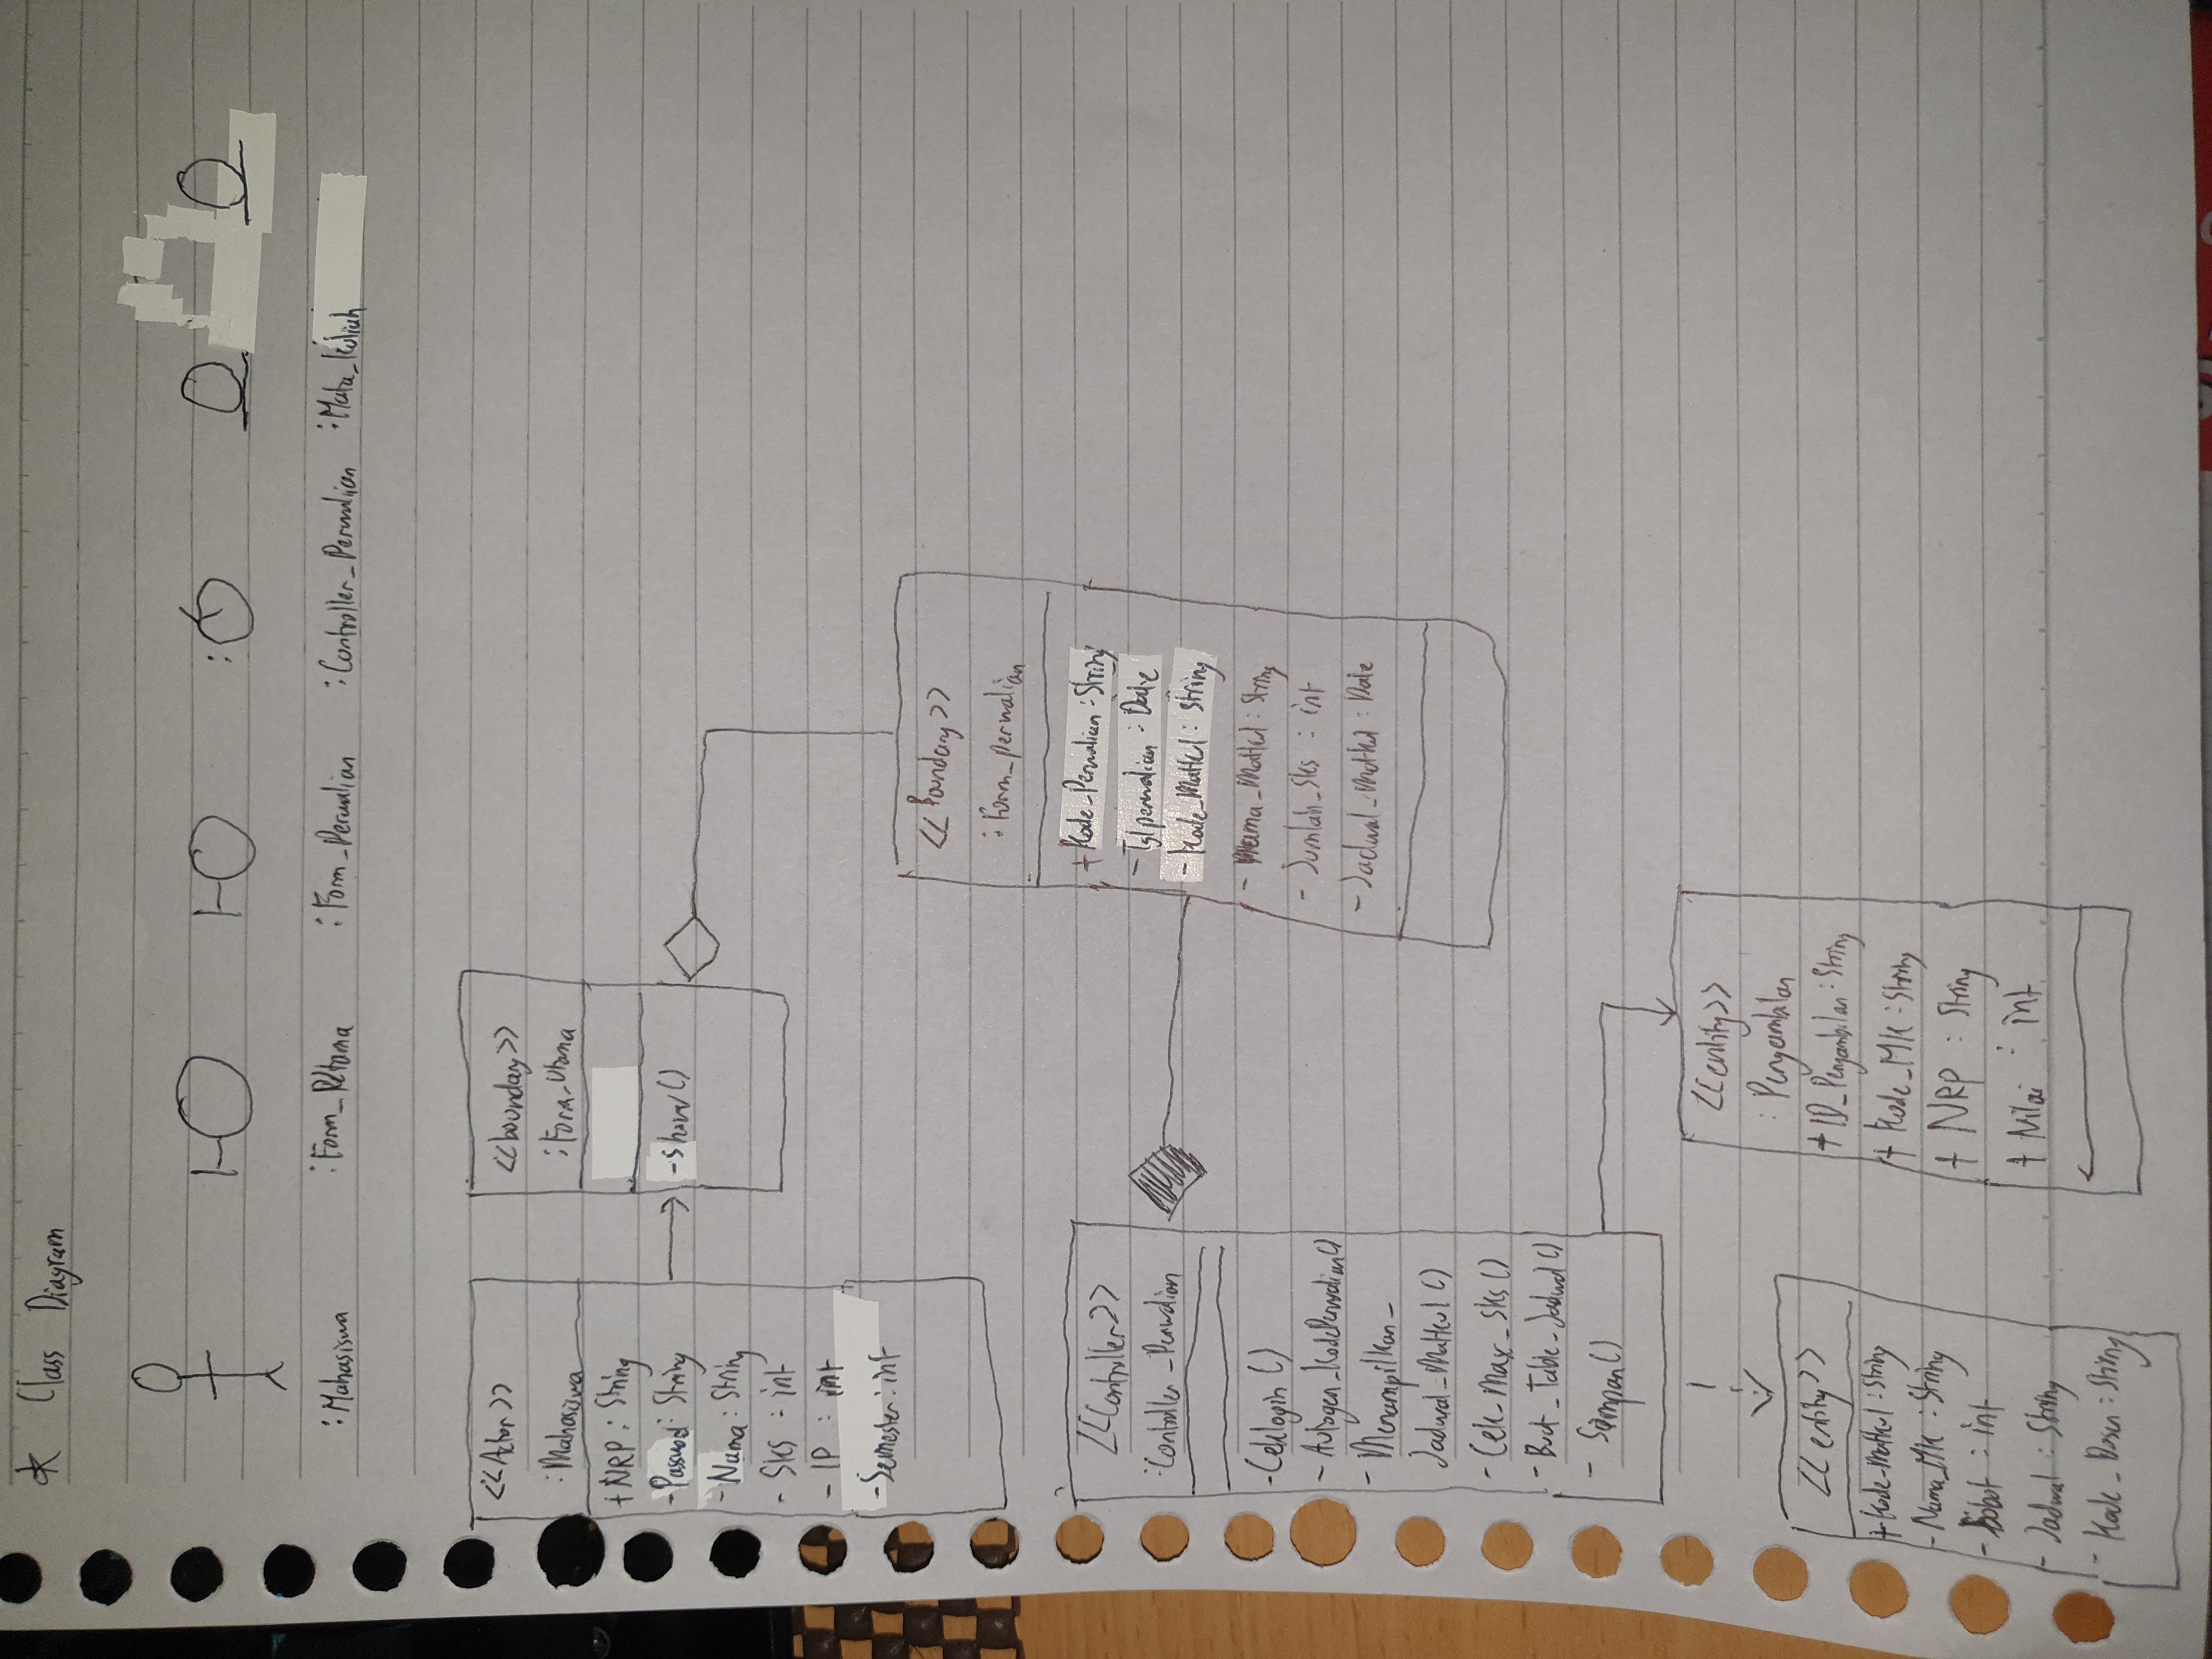 * Class Diagram
:Mahasiswa :Form_Utama :Form_Perwalian :Controller_Perwalian :Mata_Kuliah
<<Actor>>
:Mahasiswa
+NRP : String
-Password : String
-Nama : String
- Sks : int
- IP : int
-Semester : int
<<boundary>>
:Form_Utama
-show()
<<Boundary>>
:Form_perwalian
+ Kode_Perwalian : String
- Tglperwalian : Date
- Kode_Matkul : String
- Nama_Matkul : String
- Jumlah_Sks : int
- Jadwal_Matkul : Date
<<Controller>>
:Controller_Perwalian
-Ceklogin()
- Autogen_KodePerwalian()
- Menampilkan_
Jadwal_Matkul()
- Cek_Max_Sks()
- Buat_Table_Jadwal()
- Simpan()
<<entity>>
: Pengambilan
+ ID_Pengambilan : String
+ Kode_MK : String
+ NRP : String
+ Nilai : int
<<entity>>
+ Kode_Matkul : String
- Nama_MK : String
- Bobot : int
- Jadwal : String
- Kode_Dosen : String